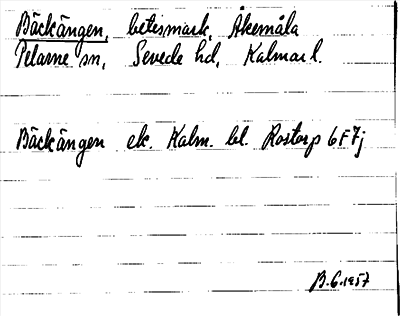 Bäckängen, betesmark, Åkemåla
Pelarne sn, Sevede hd, Kalmar l.
Bäckängen ek. Kalm. bl. Rostorp 6F7j
B.G. 1957